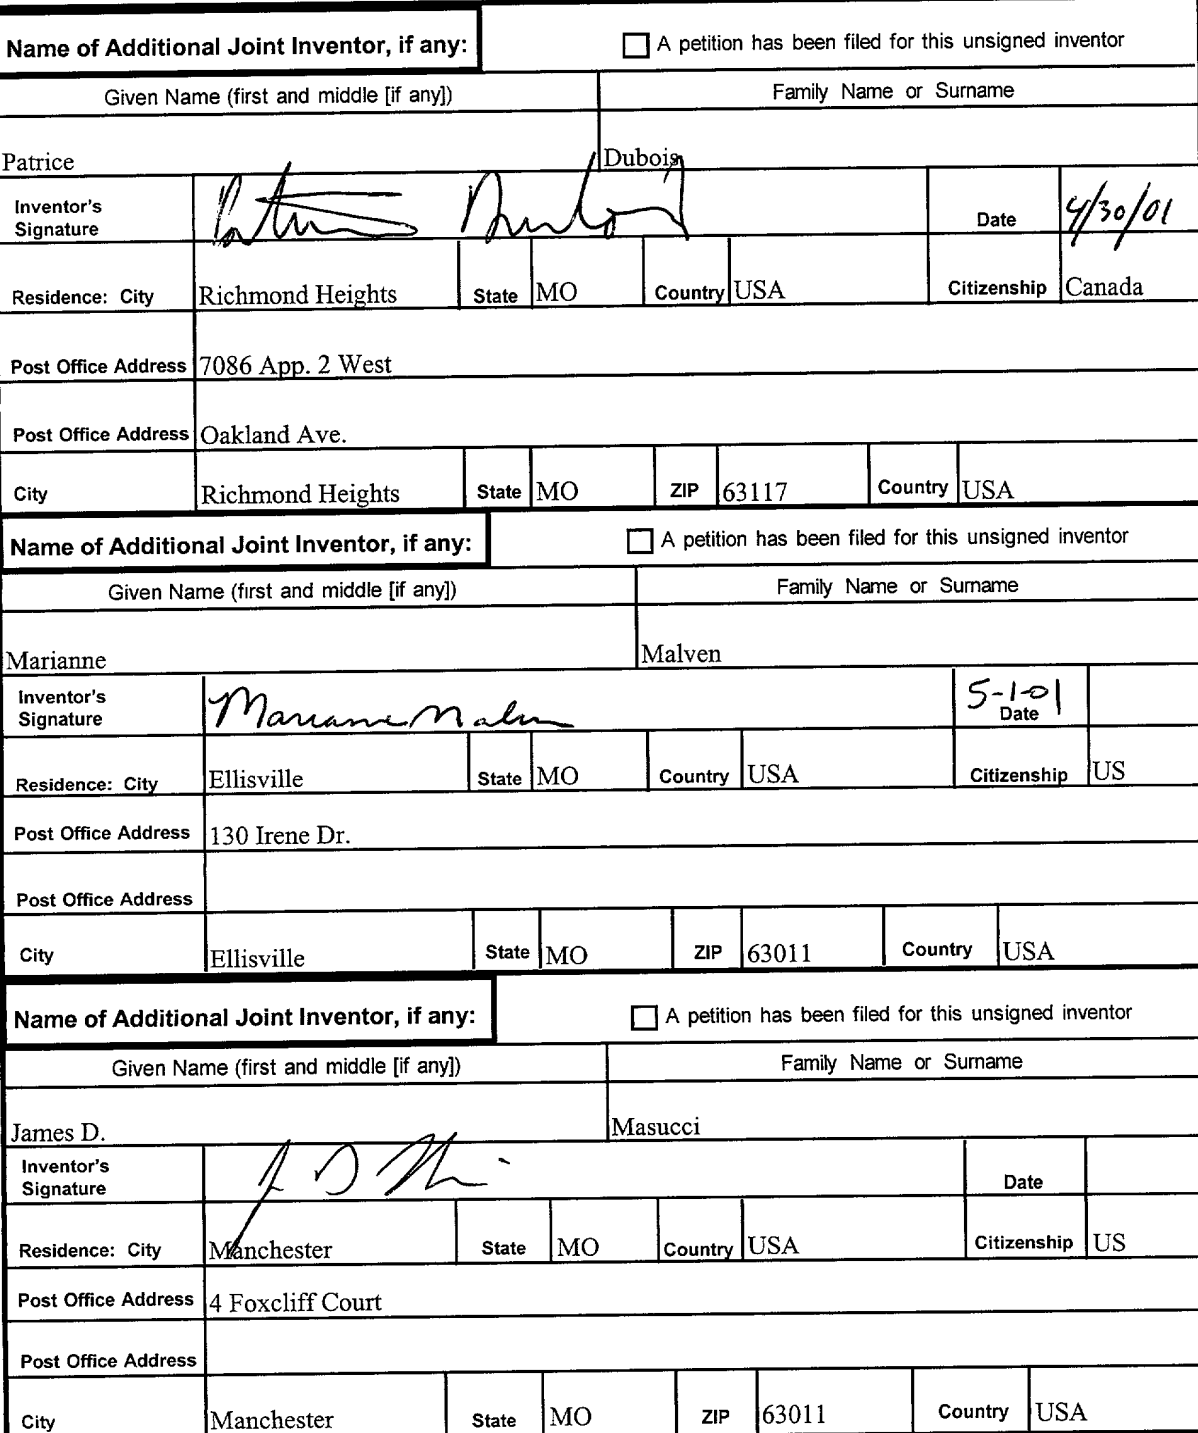 Name of Additional Joint Inventor, if any: A petition has been filed for this unsigned inventor
Given Name (first and middle [if any]) Family Name or Surname
Patrice Dubois
Inventor's Signature Patrice Dubois Date 4/30/01
Residence: City Richmond Heights State MO Country USA Citizenship Canada
Post Office Address 7086 App. 2 West
Post Office Address Oakland Ave.
City Richmond Heights State MO ZIP 63117 Country USA
Name of Additional Joint Inventor, if any: A petition has been filed for this unsigned inventor
Given Name (first and middle [if any]) Family Name or Surname
Marianne Malven
Inventor's Signature Marianne Malven 5-1-01 Date
Residence: City Ellisville State MO Country USA Citizenship US
Post Office Address 130 Irene Dr.
Post Office Address
City Ellisville State MO ZIP 63011 Country USA
Name of Additional Joint Inventor, if any: A petition has been filed for this unsigned inventor
Given Name (first and middle [if any]) Family Name or Surname
James D. Masucci
Inventor's Signature Date
Residence: City Manchester State MO Country USA Citizenship US
Post Office Address 4 Foxcliff Court
Post Office Address
City Manchester State MO ZIP 63011 Country USA